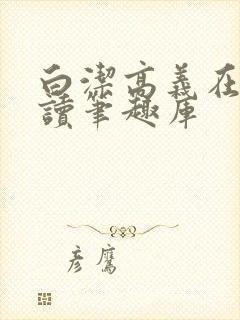 白潔高義在
讀筆趣库
彦鷹